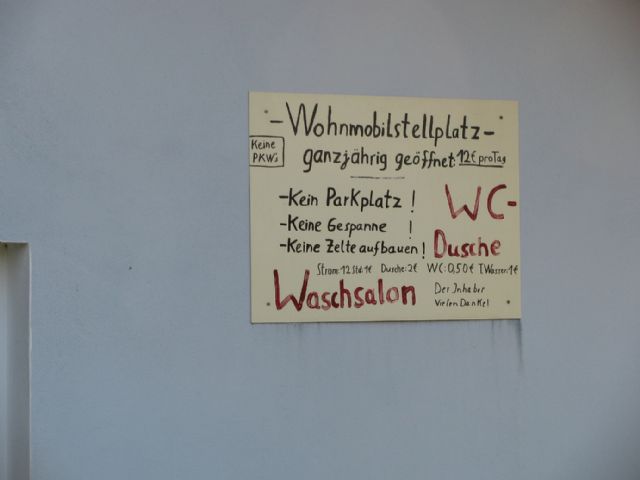 -Wohnmobilstellplatz-
Keine
PKW's
ganzjährig geöffnet: 12€ pro Tag
-Kein Parkplatz !
-Keine Gespanne !
-Keine Zelte aufbauen !
WC-
Dusche
Strom: 12 Std. 1€ Dusche: 2€ WC: 0,50€ T.Wasser: 1€
Waschsalon
Der Inhaber
Vielen Danke!